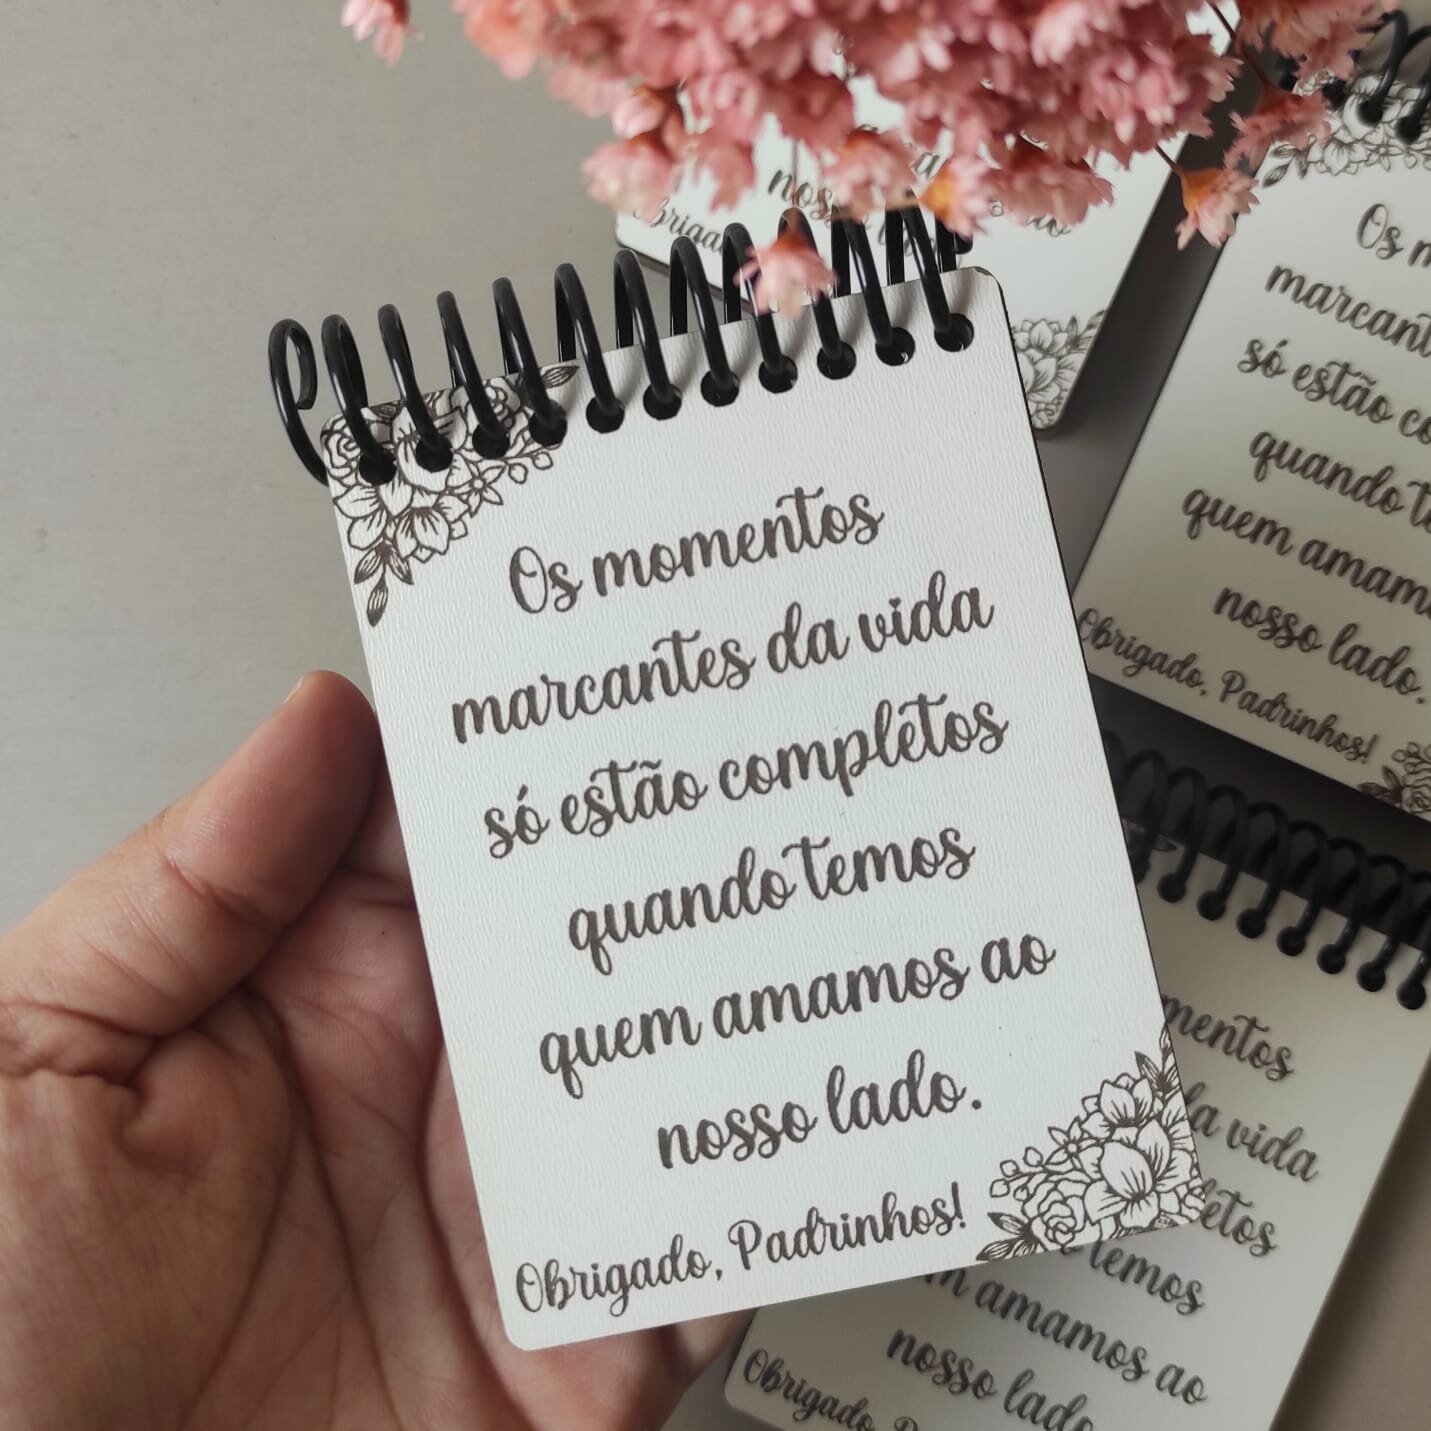 Os momentos
marcantes da vida
só estão completos
quando temos
quem amamos ao
nosso lado.
Obrigado, Padrinhos!
Os
marcant
só estão
quando
quem amam
nosso lado.
Obrigado, Padrinhos!
mentos
da vida
etos
temos
amamos ao
nosso lado
Obrigado